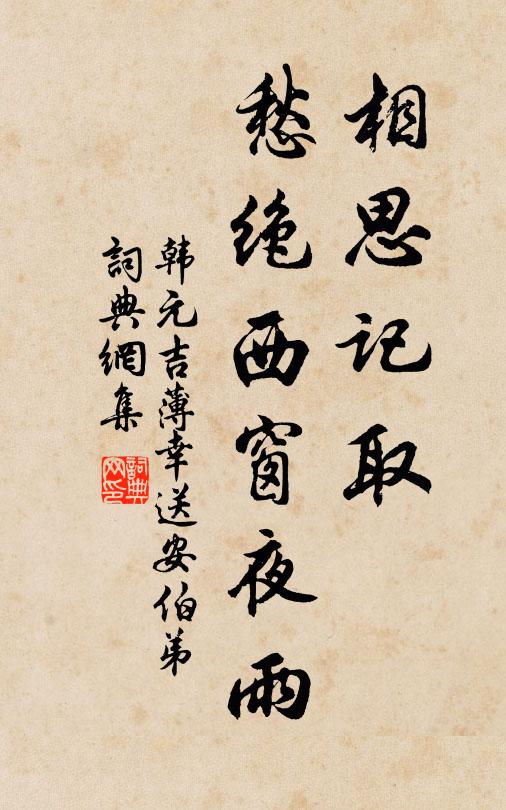 相思记取
愁绝西窗夜雨
韩元吉薄幸送安伯弟
詞典網集
詞典网印